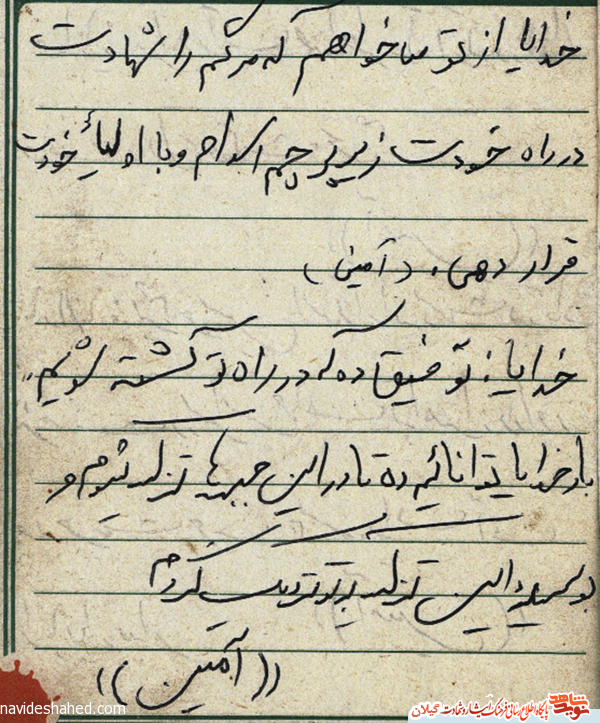 خدایا از تو میخواهم که مرگم را شهادت
در راه خودت زیر پرچم اسلام و با اولیاءِ خودت
قرار دهی. (آمین)
خدایا: توفیق ده که در راه تو کشته شویم.
بار خدایا توانائیم ده تا در این جبهه‌ها تزکیه شوم و
بوسیله این تزکیه به تو نزدیک گردم
((آمین))
navideshahed.com
نوید شاهد
پایگاه اطلاع رسانی فرهنگ ایثار و شهادت گیلان